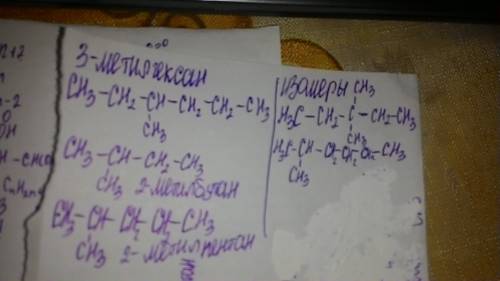 3-метилгексан
CH₃-CH₂-CH-CH₂-CH₂-CH₃
CH₃
CH₃-CH-CH₂-CH₃
CH₃ 2-метилбутан
CH₃-CH-CH₂-CH₂-CH₃
CH₃ 2-метилпентан
Изомеры
CH₃
H₃C-CH₂-C-CH₂-CH₃
CH₃
H₃C-CH-CH₂-CH₂-CH₂-CH₃
CH₃